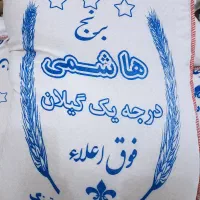 برنج
هاشمی
درجه یک گیلان
فوق اعلاء